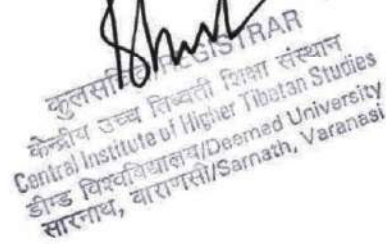 कुलसचिव/REGISTRAR
केन्द्रीय उच्च तिब्बती शिक्षा संस्थान
Central Institute of Higher Tibetan Studies
डीम्ड विश्वविद्यालय/Deemed University
सारनाथ, वाराणसी/Sarnath, Varanasi